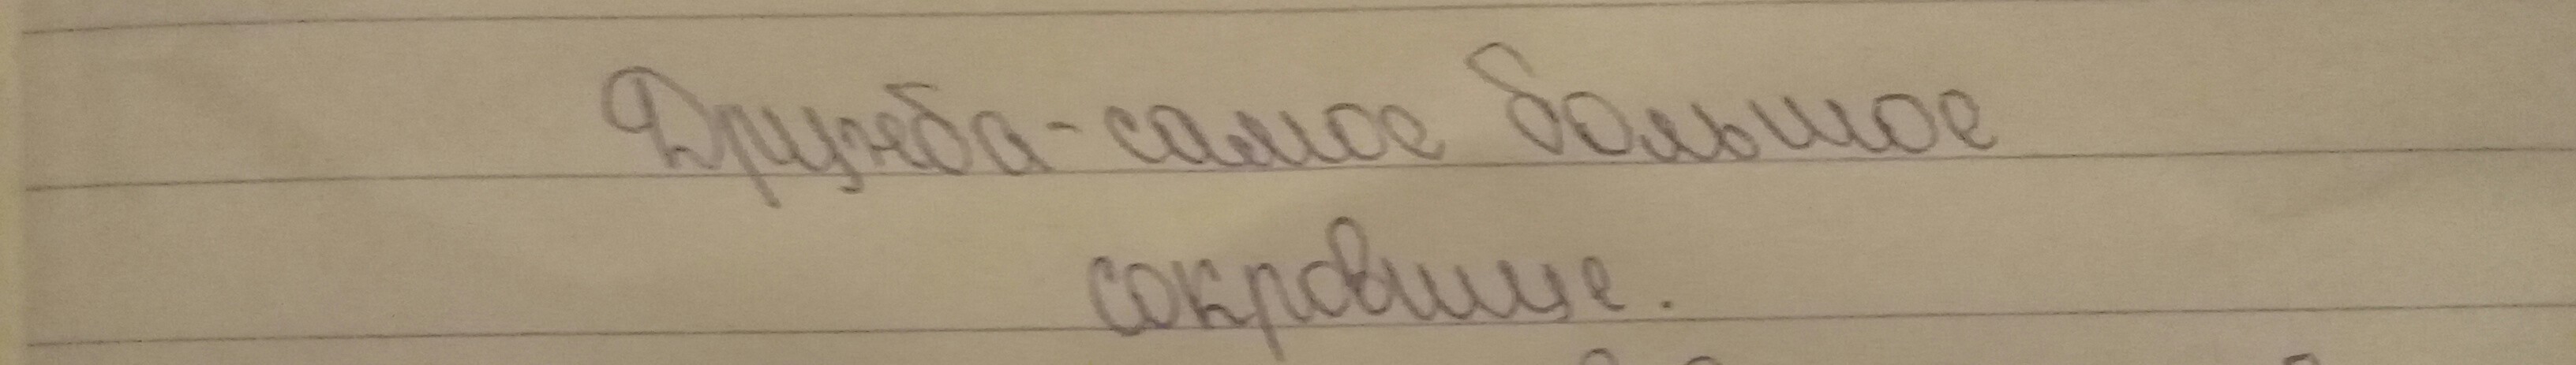 Дружба-самое большое
сокровище.